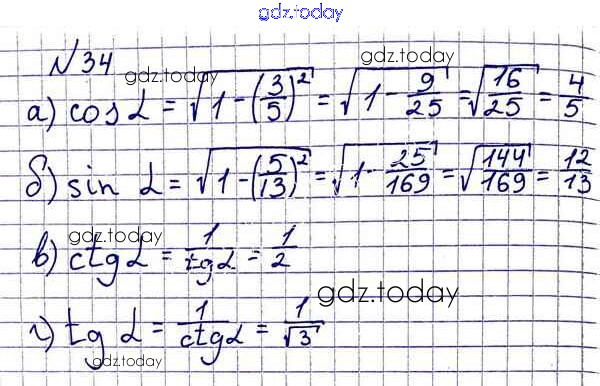 gdz.today
№34
gdz.today
gdz.today
а) cos α = √(1 - (3/5)²) = √(1 - 9/25) = √(16/25) = 4/5
б) sin α = √(1 - (5/13)²) = √(1 - 25/169) = √(144/169) = 12/13
gdz.today
в) ctg α = 1/tg α = 1/2
gdz.today
г) tg α = 1/ctg α = 1/√3
gdz.today